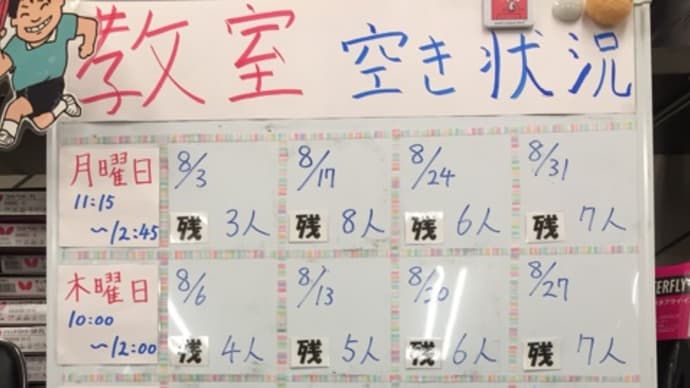 教室 空き状況
月曜日
11:15
〜12:45
8/3
残 3人
8/17
残 8人
8/24
残 6人
8/31
残 7人
木曜日
10:00
〜12:00
8/6
残 4人
8/13
残 5人
8/20
残 6人
8/27
残 7人